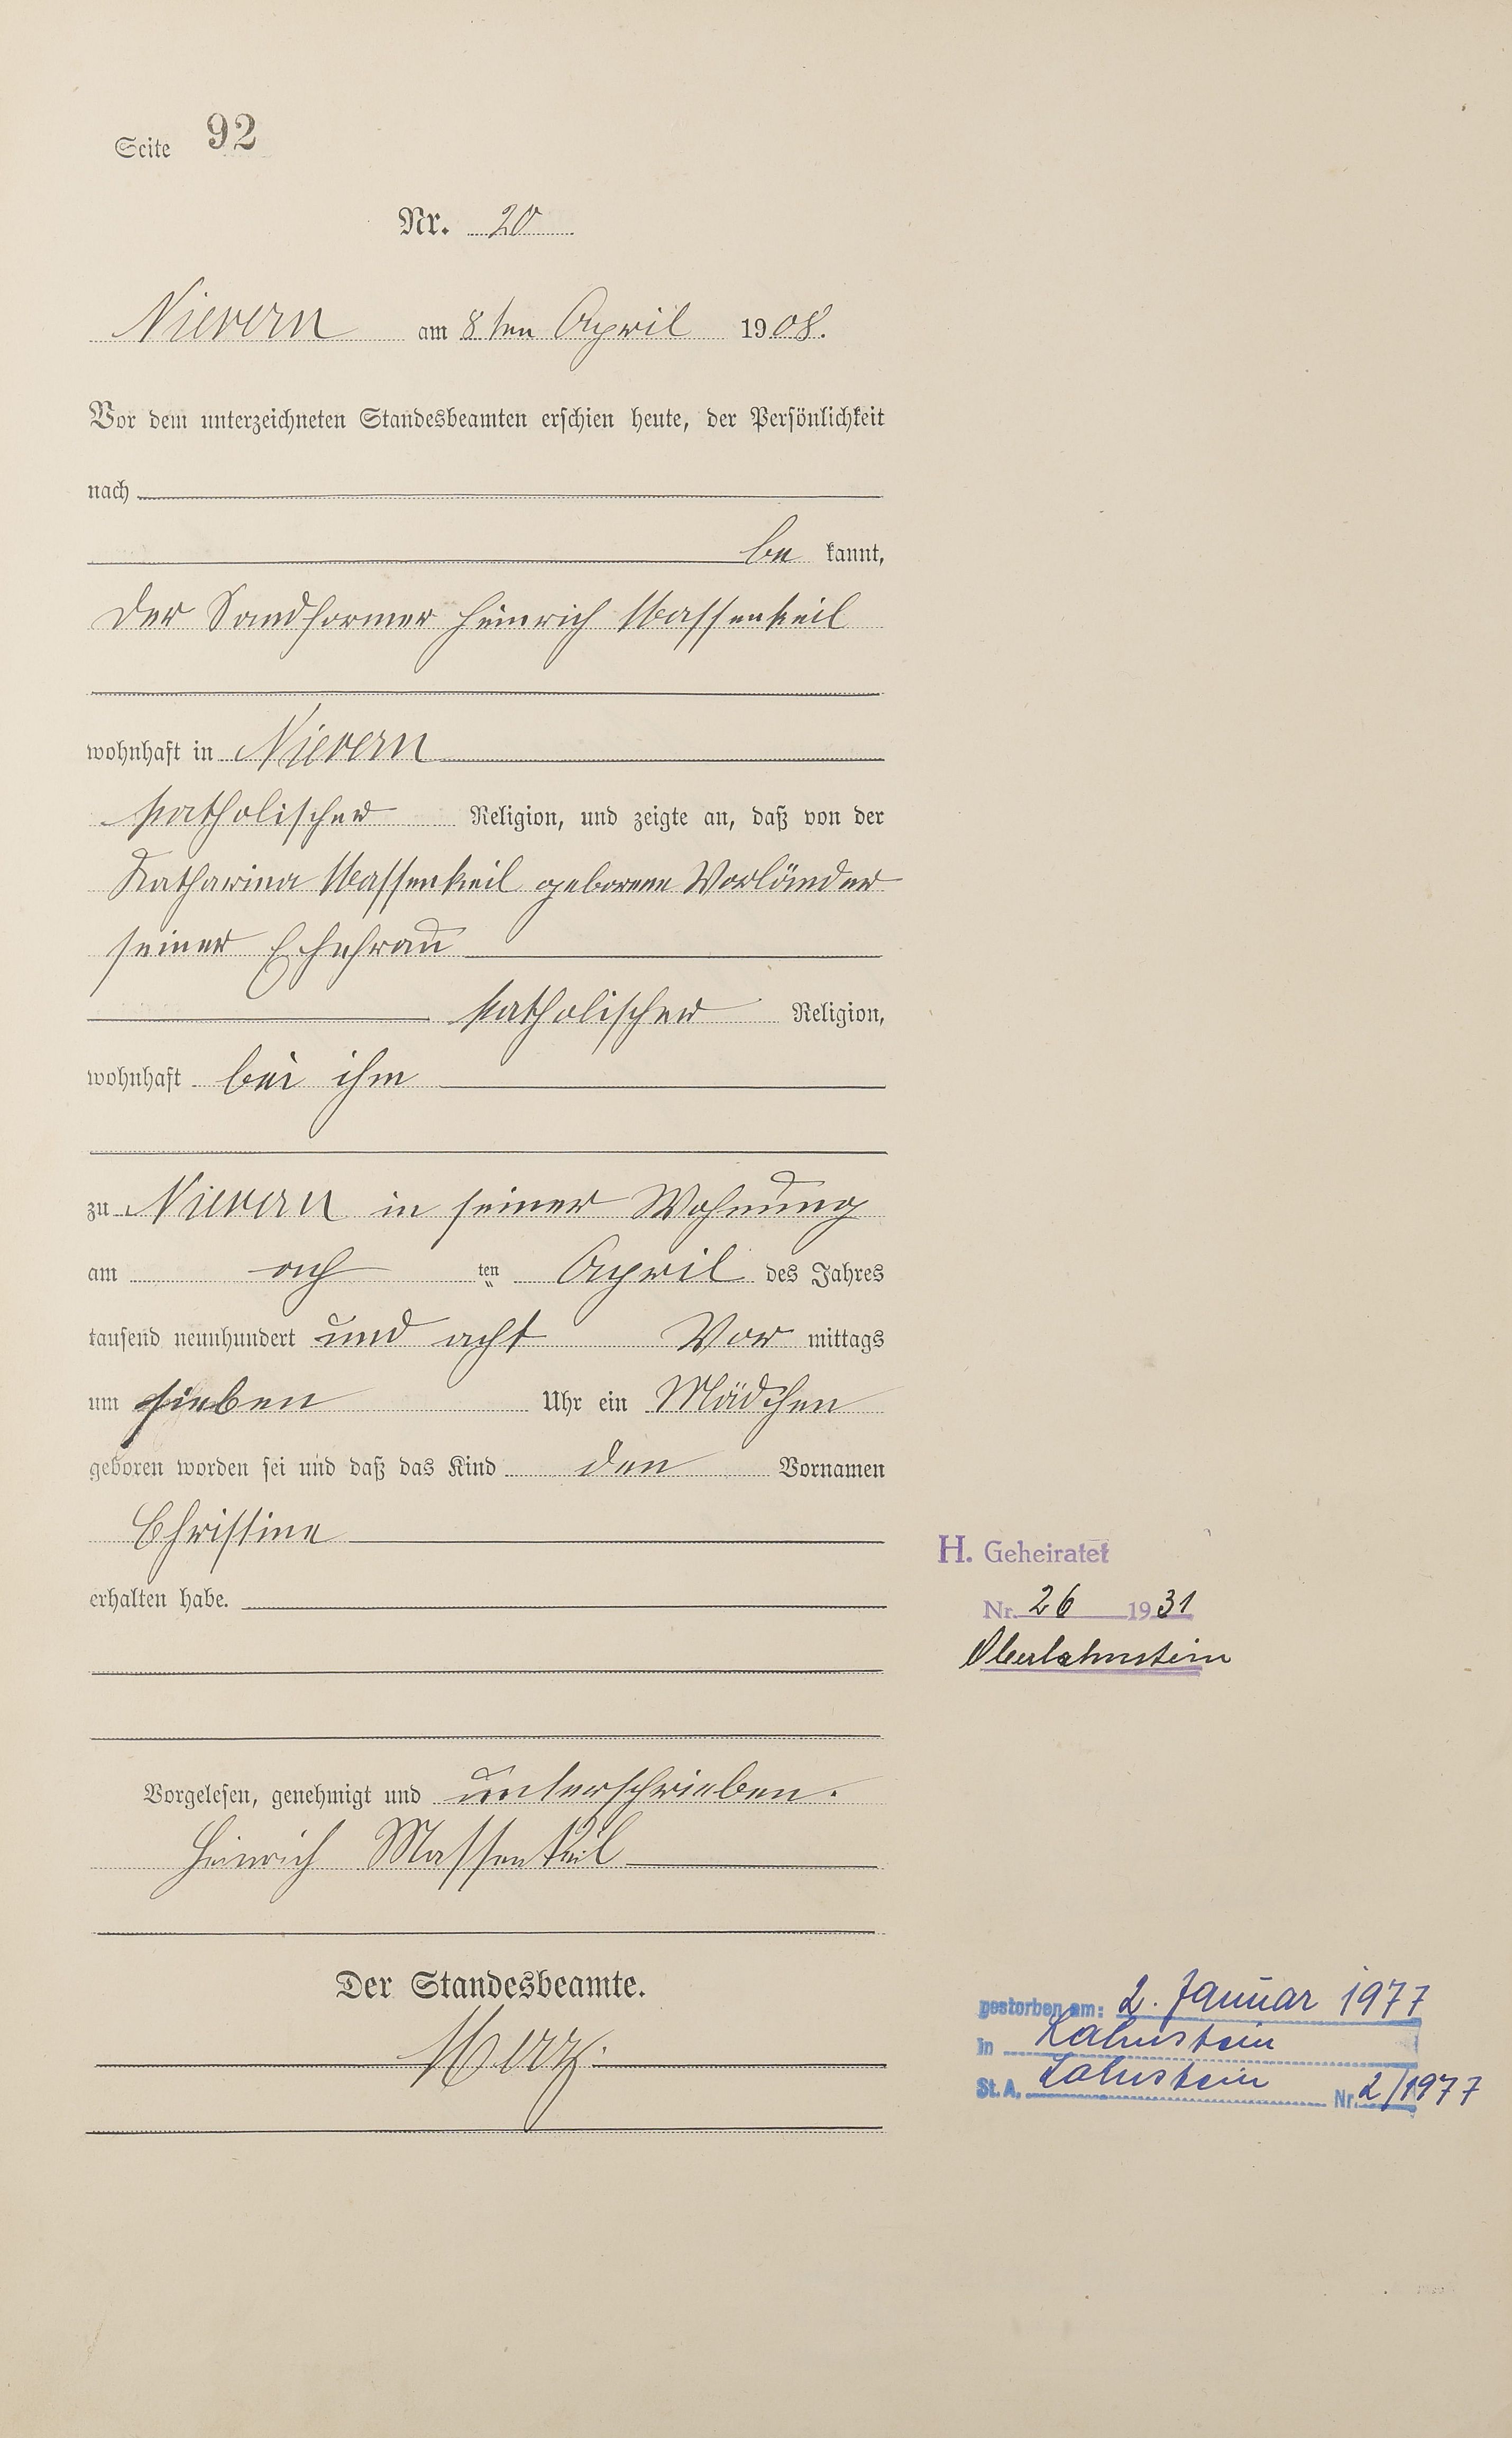 Seite 92
Nr. 20
Nievern am 8ten April 1908.
Vor dem unterzeichneten Standesbeamten erschien heute, der Persönlichkeit
nach
be kannt,
der Sandformer Heinrich Massenkeil
wohnhaft in Nievern
katholischer Religion, und zeigte an, daß von der
Katharina Massenkeil geborene Vorländer
seiner Ehefrau
katholischer Religion,
wohnhaft bei ihm
zu Nievern in seiner Wohnung
am ach ten April des Jahres
tausend neunhundert und acht Vor mittags
um sieben Uhr ein Mädchen
geboren worden sei und daß das Kind den Vornamen
Christine
erhalten habe.
H. Geheiratet
Nr. 26 1931
Oberlahnstein
Vorgelesen, genehmigt und unterschrieben.
Heinrich Massenkeil
Der Standesbeamte.
gestorben am: 2. Januar 1977
in Lahnstein
St. A. Lahnstein Nr. 2/1977